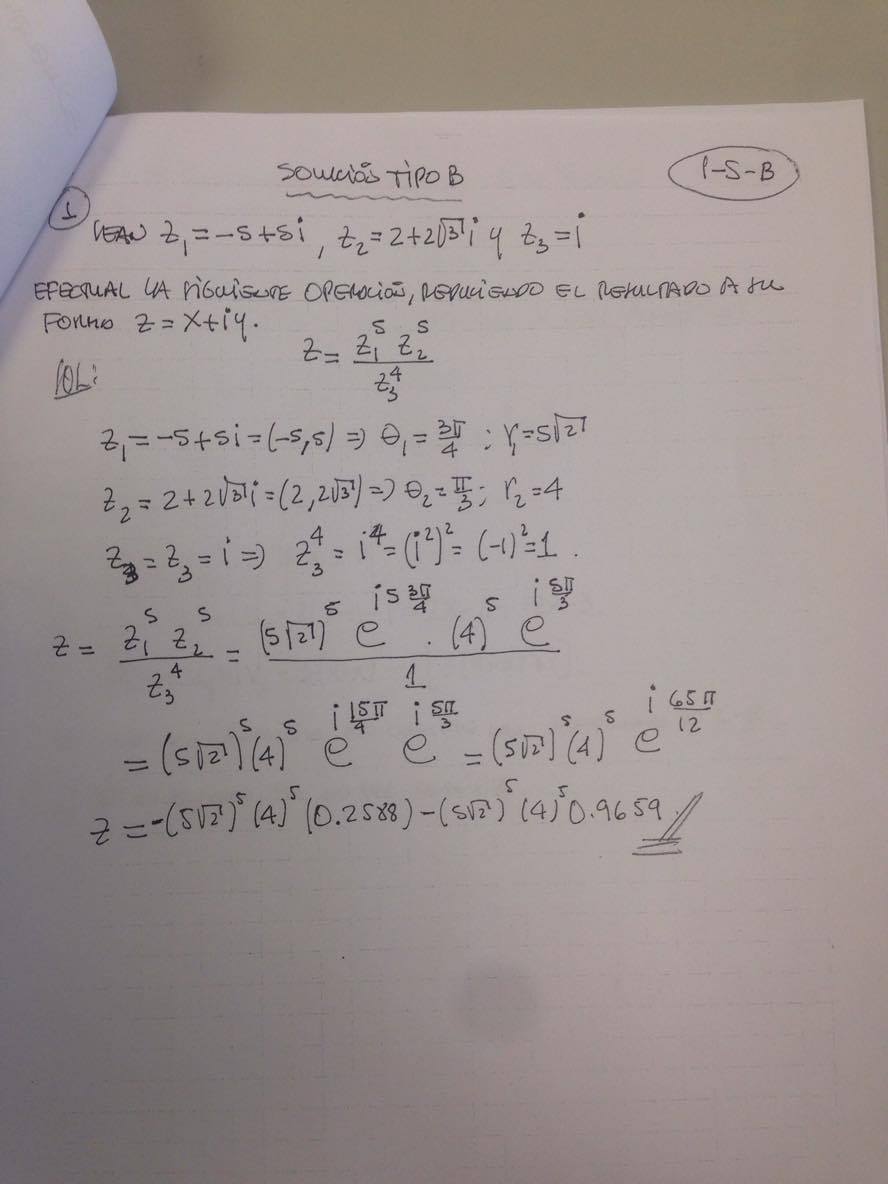 SOLUCIÓN TIPO B
1-S-B
1
SEAN z₁ = -5+5i, z₂ = 2+2√3 i y z₃ = i
EFECTUAR LA SIGUIENTE OPERACIÓN, REDUCIENDO EL RESULTADO A SU
FORMA z = x+iy.
z = z₁⁵ z₂⁵ / z₃⁴
SOL:
z₁ = -5+5i = (-5,5) => θ₁ = 3π/4 ; r₁ = 5√2
z₂ = 2+2√3 i = (2, 2√3) => θ₂ = π/3 ; r₂ = 4
z₃ = z₃ = i => z₃⁴ = i⁴ = (i²)² = (-1)² = 1.
z = z₁⁵ z₂⁵ / z₃⁴ = (5√2)⁵ e^(i5 3π/4) . (4)⁵ e^(i 5π/3) / 1
= (5√2)⁵ (4)⁵ e^(i 15π/4) e^(i 5π/3) = (5√2)⁵ (4)⁵ e^(i 65π/12)
z = -(5√2)⁵ (4)⁵ (0.2588) - (5√2)⁵ (4)⁵ 0.9659